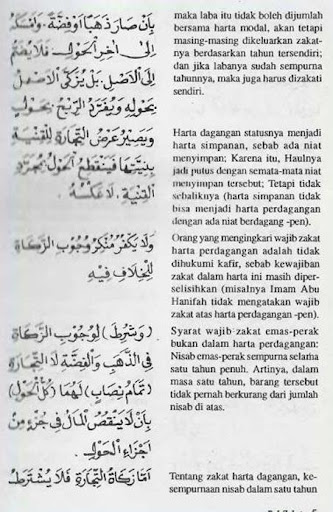 بِأَنْ صَارَ ذَهَبًا أَوْ فِضَّةً، وَأَمْسَكَهُ
إِلَى آخِرِ الْحَوْلِ، فَلَا يُضَمُّ
إِلَى الْأَصْلِ، بَلْ يُزَكَّى الْأَصْلُ
بِحَوْلِهِ وَيُفْرَدُ الرِّبْحُ بِحَوْلٍ
وَيَصِيْرُ عَرْضُ التِّجَارَةِ لِلْقِنْيَةِ
بِنِيَّتِهَا فَيَنْقَطِعُ الْحَوْلُ بِمُجَرَّدِ نِيَّةِ
الْقِنْيَةِ. لَا عَكْسُهُ
وَلَا يَكْفُرُ مُنْكِرُ وُجُوْبِ الزَّكَاةِ
لِلْخِلَافِ فِيْهِ
(وَشُرِطَ) لِوُجُوْبِ الزَّكَاةِ
فِى الذَّهَبِ وَالْفِضَّةِ لَا التِّجَارَةِ
(تَمَامُ نِصَابٍ) لَهُمَا (كُلَّ الْحَوْلِ)
بِأَنْ لَا يَنْقُصَ الْمَالُ فِى جُزْءٍ مِنْ
أَجْزَاءِ الْحَوْلِ.
أَمَّا زَكَاةُ التِّجَارَةِ فَلَا يُشْتَرَطُ
maka laba itu tidak boleh dijumlah
bersama harta modal, akan tetapi
masing-masing dikeluarkan zakat-
nya berdasarkan tahun tersendiri;
dan jika labanya sudah sempurna
tahunnya, maka juga harus dizakati
sendiri.
Harta dagangan statusnya menjadi
harta simpanan, sebab ada niat
menyimpan; Karena itu, Haulnya
jadi putus dengan semata-mata niat
menyimpan tersebut; Tetapi tidak
sebaliknya (harta simpanan tidak
bisa menjadi harta perdagangan
dengan ada niat berdagang -pen).
Orang yang mengingkari wajib zakat
harta perdagangan adalah tidak
dihukumi kafir, sebab kewajiban
zakat dalam harta ini masih diper-
selisihkan (misalnya Imam Abu
Hanifah tidak mengatakan wajib
zakat atas harta perdagangan -pen).
Syarat wajib zakat emas-perak
bukan dalam harta perdagangan:
Nisab emas-perak sempurna selama
satu tahun penuh. Artinya, dalam
masa satu tahun, barang tersebut
tidak pernah berkurang dari jumlah
nisab di atas.
Tentang zakat harta dagangan, ke-
sempurnaan nisab dalam satu tahun